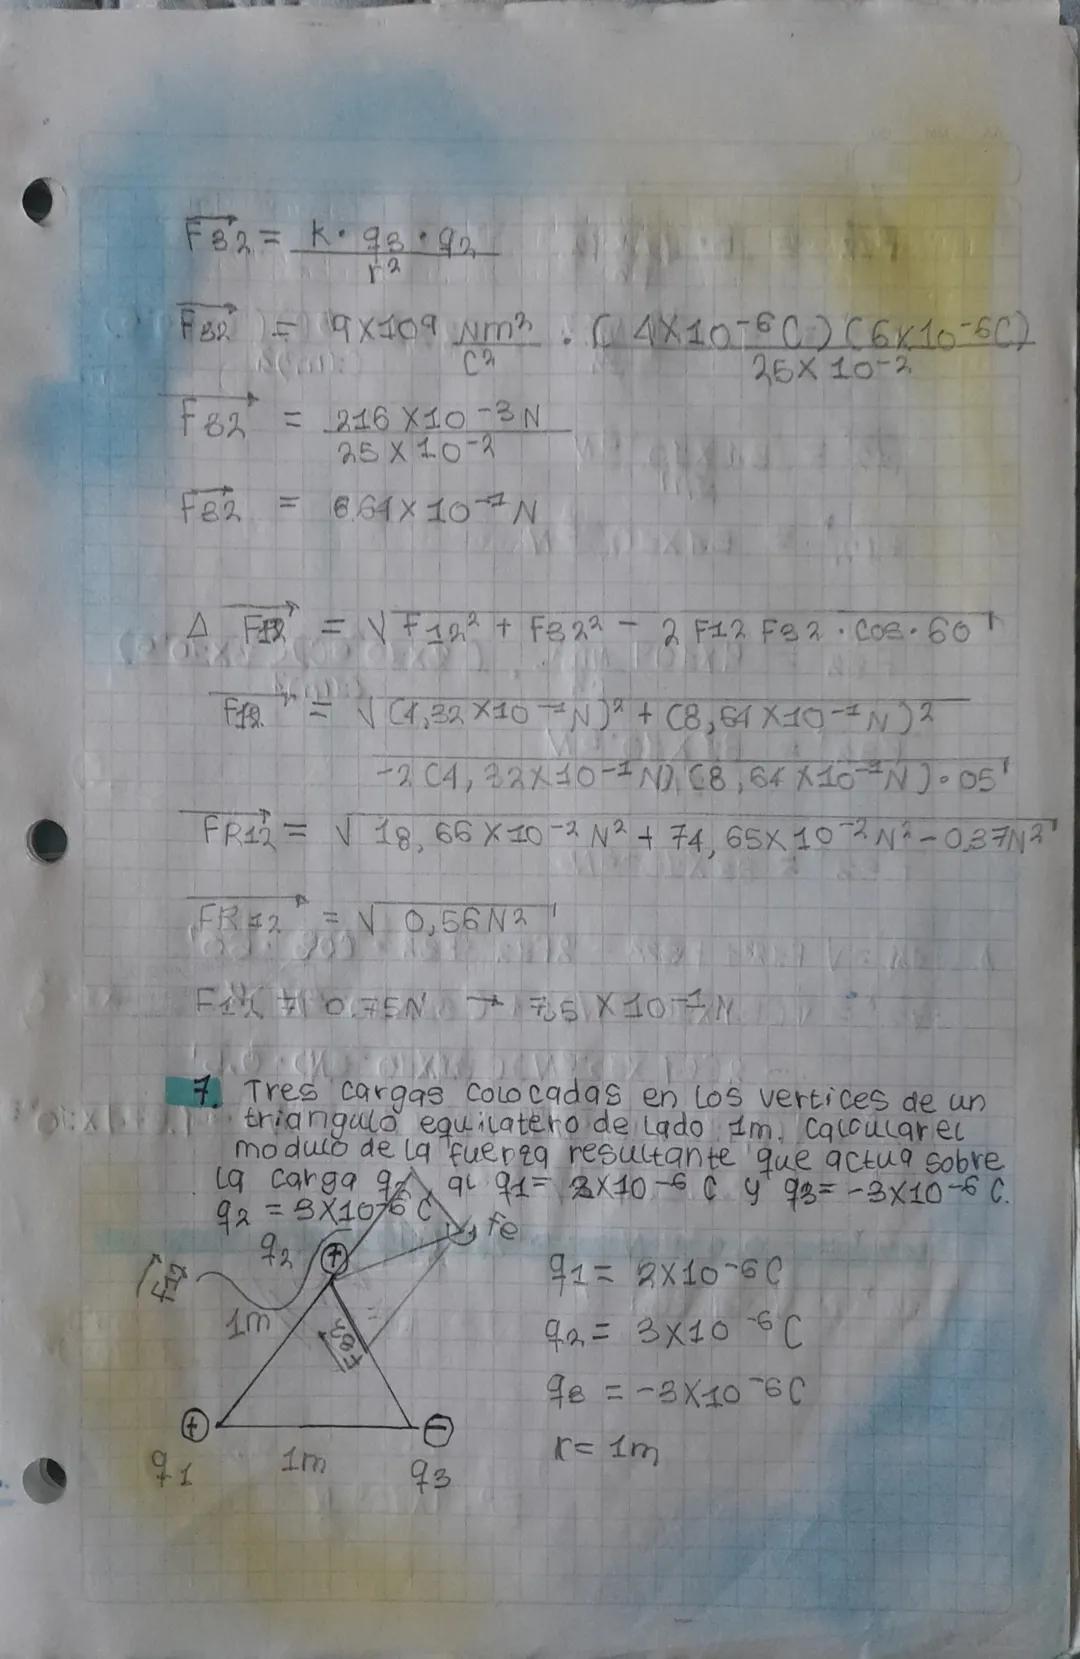 F32 = k · q3 · q2 / r²
F32 = 9x109 Nm² / C² · (4x10-6C) (6x10-6C) / 25x10-2
F32 = 216 x10-3N / 25x10-2
F32 = 8.64x10-1N
Δ F12 = √F12² + F32² - 2 F12 F32 · cos · 60
F12 = √(4,32x10-1N)² + (8,64x10-1N)²
-2 (4,32x10-1N) (8,64x10-1N) · 05
FR12 = √18,66x10-2N² + 74,65x10-2N² - 0,37N²
FR12 = √0,56N²
= 0.75N → 7,5 x10-1N
7. Tres cargas colocadas en los vertices de un
triangulo equilatero de lado 1m. Calcular el
modulo de la fuerza resultante que actua sobre
la carga q2, q1 = 2x10-6 C y q3 = -3x10-6 C.
q2 = 3x10-6 C
q2
+
Fe
F12
1m
+
q1
1m
-
q3
q1 = 2x10-6C
q2 = 3x10-6C
q3 = -3x10-6C
r = 1m